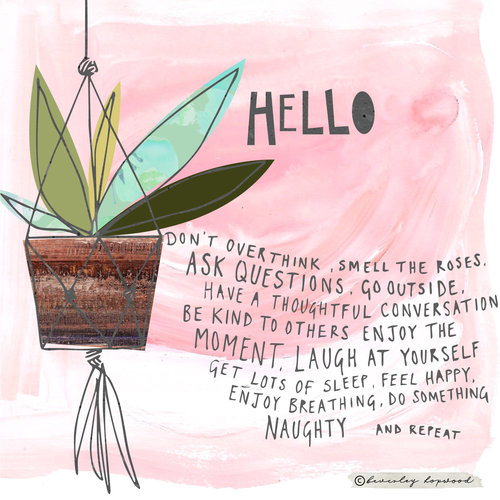 HELLO
DON'T OVERTHINK, SMELL THE ROSES.
ASK QUESTIONS, GO OUTSIDE,
HAVE A THOUGHTFUL CONVERSATION
BE KIND TO OTHERS ENJOY THE
MOMENT, LAUGH AT YOURSELF
GET LOTS OF SLEEP, FEEL HAPPY,
ENJOY BREATHING, DO SOMETHING
NAUGHTY AND REPEAT
©beverley hopwood